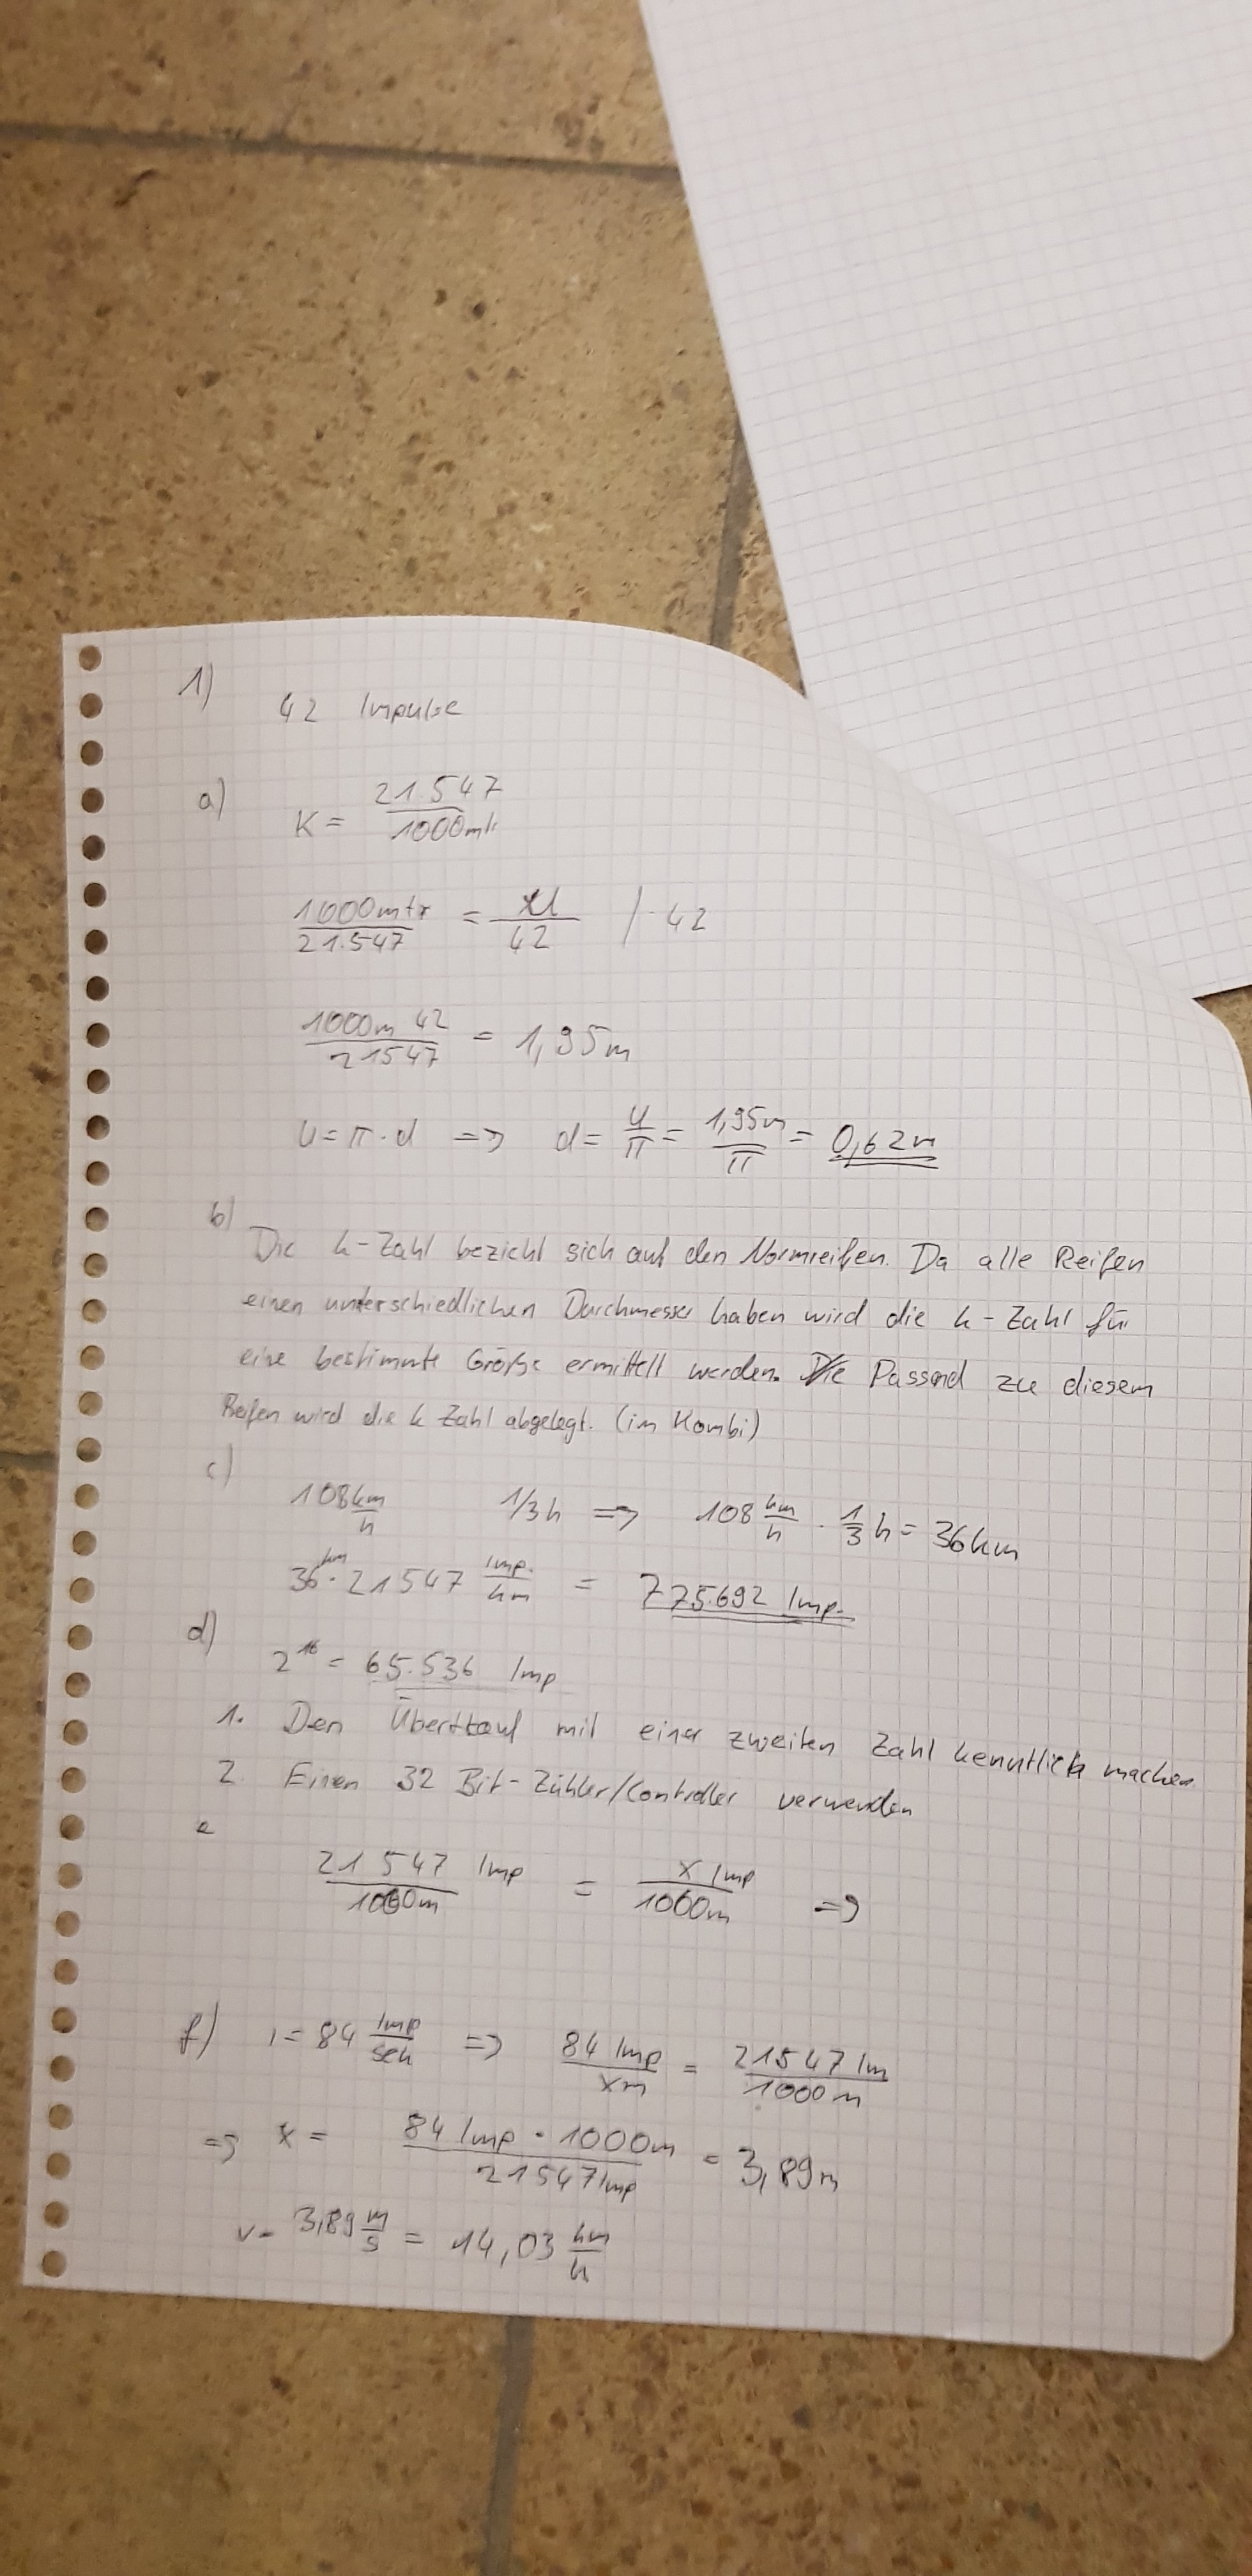 1)
42 Impulse
a)
K = 21.547 / 1000mtr
1000mtr / 21.547 = xU / 42 | · 42
1000m 42 / 21547 = 1,95m
U = π · d => d = U / π = 1,95m / π = 0,62m
b)
Die k-Zahl bezieht sich auf den Normreifen. Da alle Reifen
einen unterschiedlichen Durchmesser haben wird die k-Zahl für
eine bestimmte Größe ermittelt werden. Passend zu diesem
Reifen wird die k Zahl abgelegt. (im Kombi)
c)
108 km/h 1/3h => 108 km/h · 1/3 h = 36km
36 km · 21547 Imp./km = 775.692 Imp.
d)
2^16 = 65.536 Imp
1. Den Überlauf mit einer zweiten Zahl kenntlich machen
2. Einen 32 Bit-Zähler/Controller verwenden
e
21547 Imp / 1000m = x Imp / 1000m =>
f) i = 84 Imp/sek => 84 Imp / xm = 21547 Im / 1000m
=> x = 84 Imp · 1000m / 21547 Imp = 3,89m
v = 3,89 m/s = 14,03 km/h